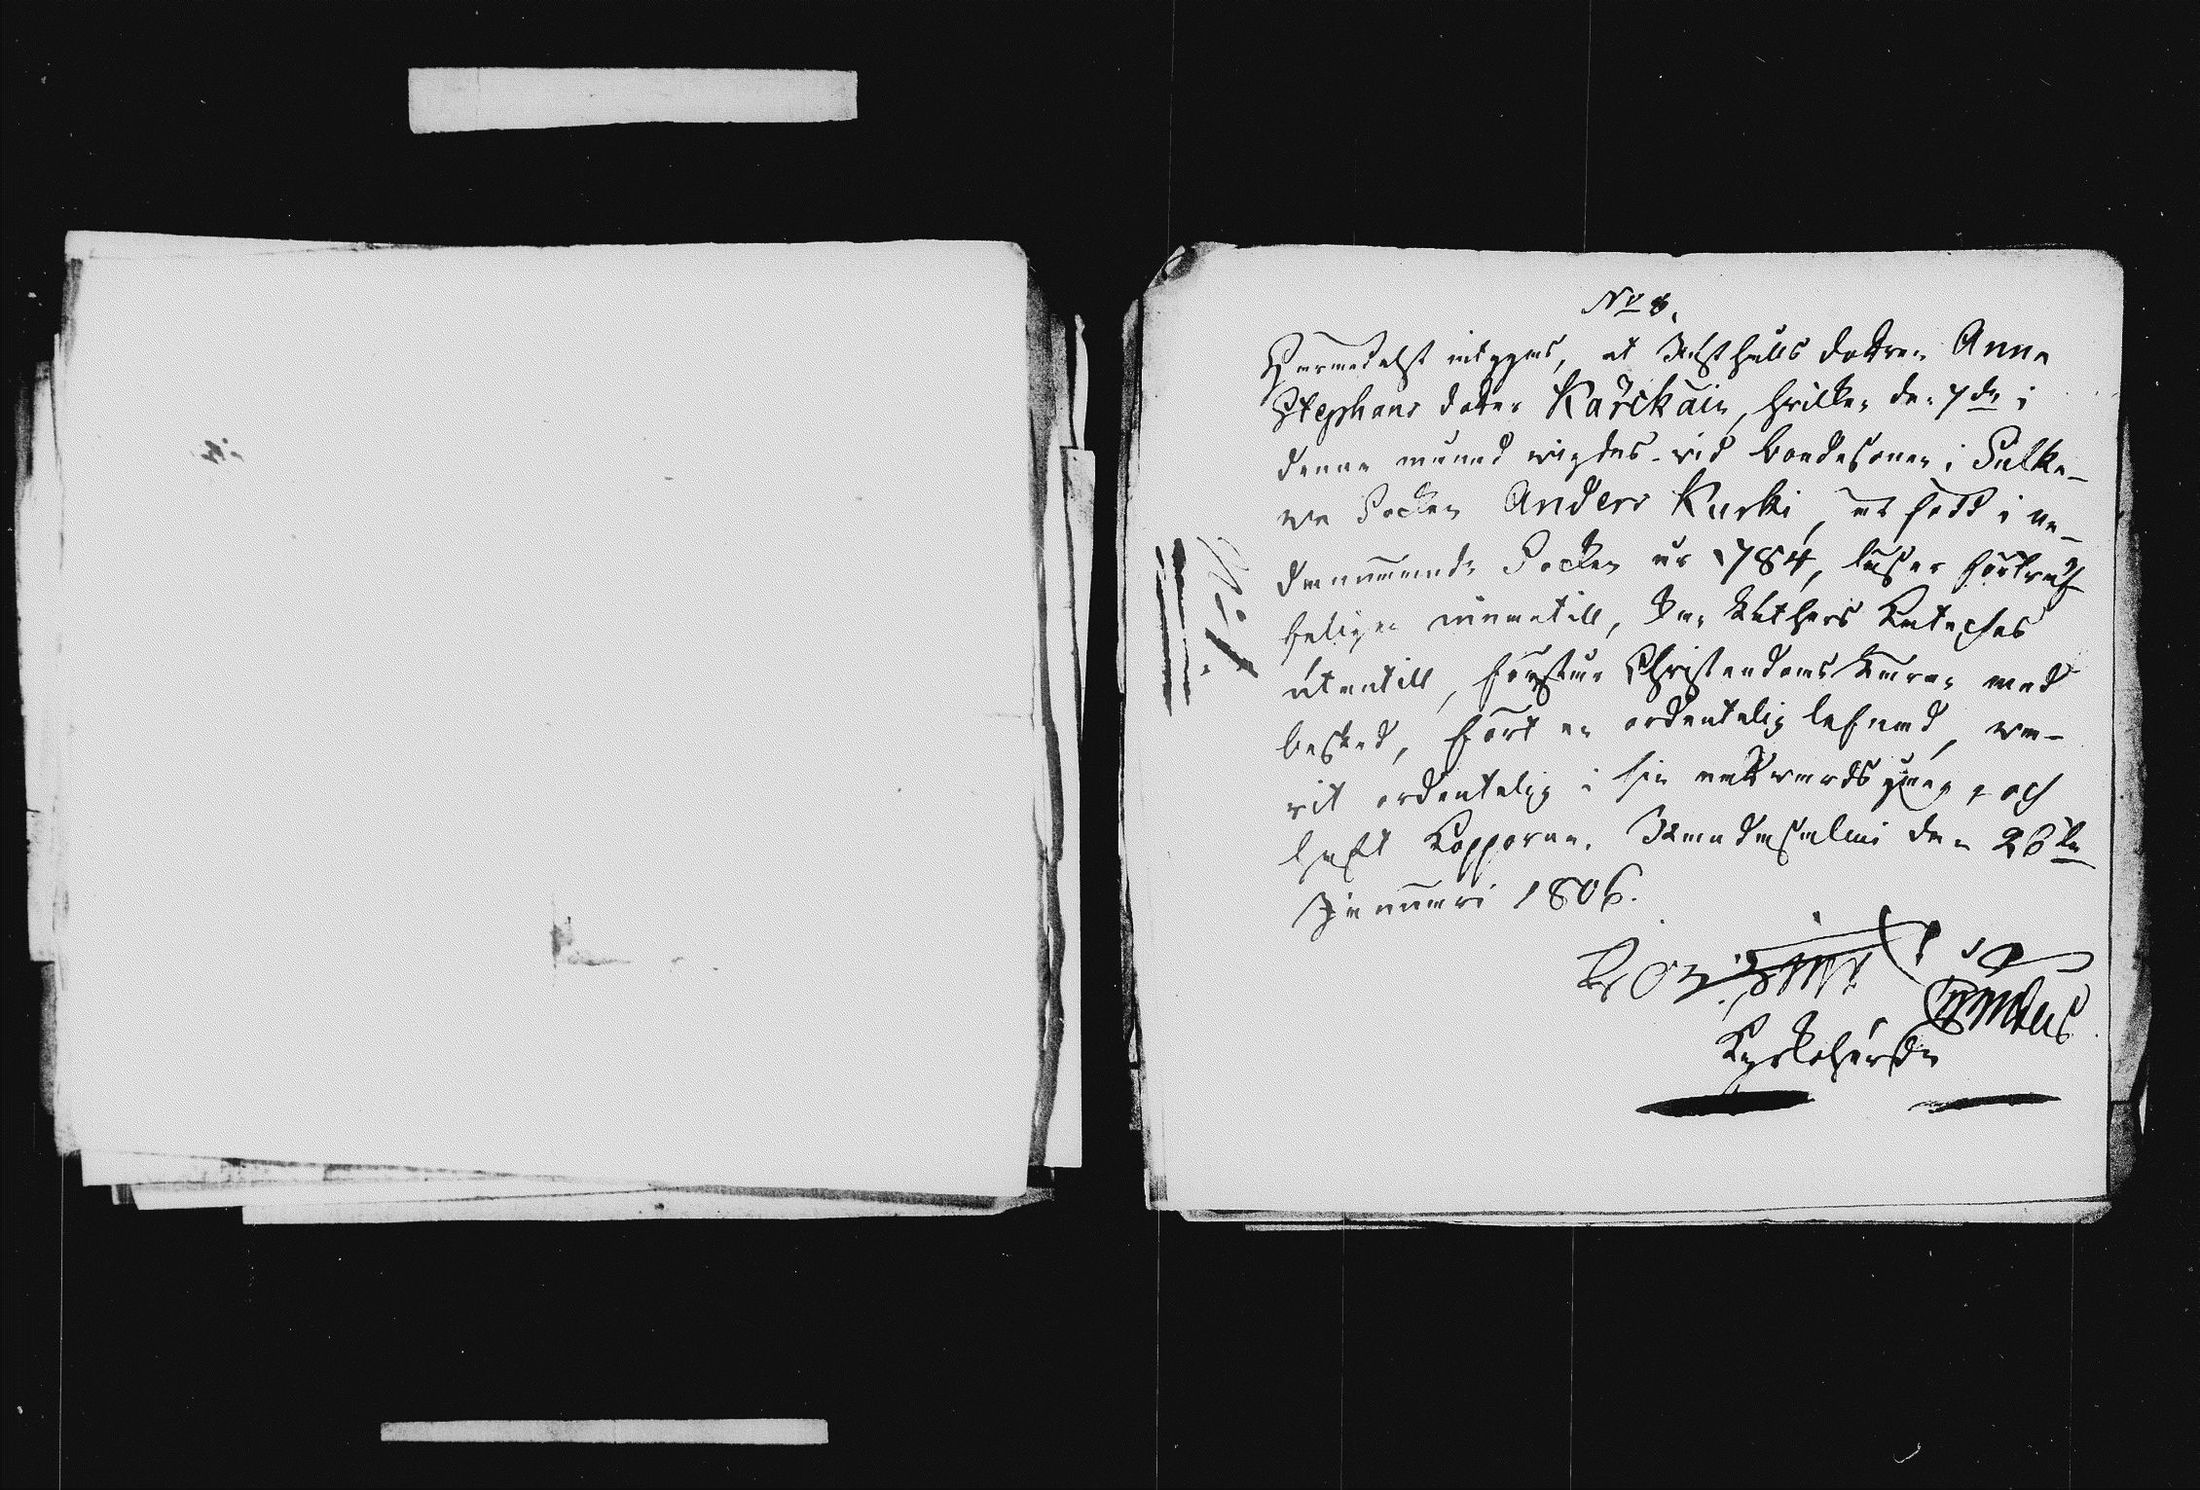 No 8.
Härmedelst intygas, at Inhysthults dottren Anna
Stephans dotter Kärckäin, hvilken den 7de i
denna månad wigdes wid bondesonen i Sulka-
wa Socken Anders Kurki, är född i ne-
dannämnde Socken år 1784, läser förträf-
feligen innantill, Dr Luthers Kateches
utantill, förstår Christendoms Läran med
besked, fört en ordentelig lefnad, wa-
rit ordentelig i sin nattwards gång, och
haft Kopporna. Randasalmi den 26te
Januari 1806.
Kyrkoherde